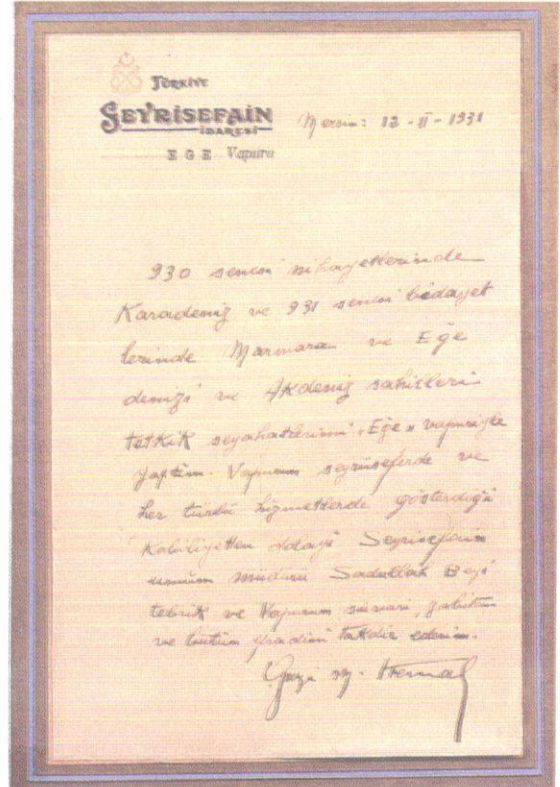 TÜRKİYE
SEYRİSEFAİN
İDARESİ
EGE Vapuru
Mersin: 12-II-1931
930 senesi nihayetlerinde
Karadeniz ve 931 senesi bidayet
lerinde Marmara ve Ege
denizi ve Akdeniz sahilleri
tetkik seyahatlerimi "Ege" vapuriyle
yaptım. Vapurun seyrüseferde ve
her türlü hizmetlerde gösterdiği
kabiliyetten dolayı Seyrisefain
umum müdürü Sadullah Beyi
tebrik ve Vapurun süvari, zabitan
ve bütün efradını takdir ederim.
Gazi M. Kemal